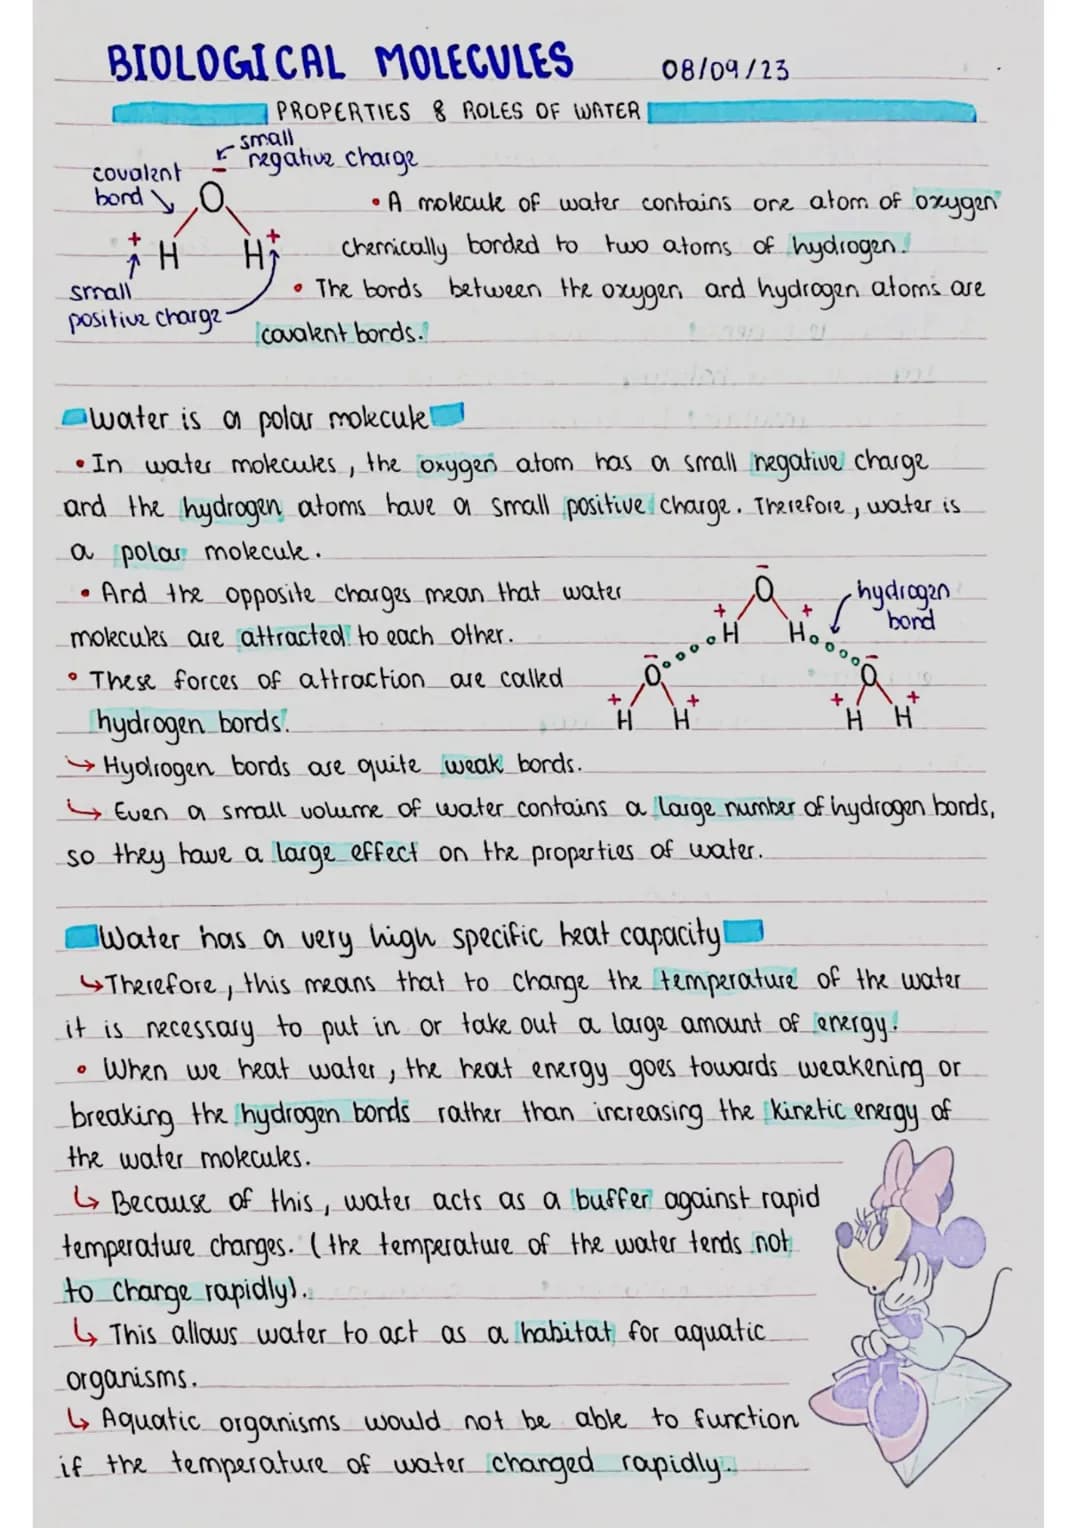 BIOLOGICAL MOLECULES 08/09/23
PROPERTIES & ROLES OF WATER
small
negative charge
covalent
bond
O
-
+ H H +
small
positive charge
• A molecule of water contains one atom of oxygen
chemically bonded to two atoms of hydrogen.
• The bonds between the oxygen and hydrogen atoms are
covalent bonds.
Water is a polar molecule
• In water molecules, the oxygen atom has a small negative charge
and the hydrogen atoms have a small positive charge. Therefore, water is
a polar molecule.
• And the opposite charges mean that water
molecules are attracted to each other.
• These forces of attraction are called
hydrogen bonds.
hydrogen
bond
-
O
+ H H +
- O O -
+ + + +
H H H H
↳ Hydrogen bonds are quite weak bonds.
↳ Even a small volume of water contains a large number of hydrogen bonds,
so they have a large effect on the properties of water.
Water has a very high specific heat capacity
↳ Therefore, this means that to change the temperature of the water
it is necessary to put in or take out a large amount of energy.
• When we heat water, the heat energy goes towards weakening or
breaking the hydrogen bonds rather than increasing the kinetic energy of
the water molecules.
↳ Because of this, water acts as a buffer against rapid
temperature changes. (the temperature of the water tends not
to change rapidly).
↳ This allows water to act as a habitat for aquatic
organisms.
↳ Aquatic organisms would not be able to function
if the temperature of water changed rapidly.